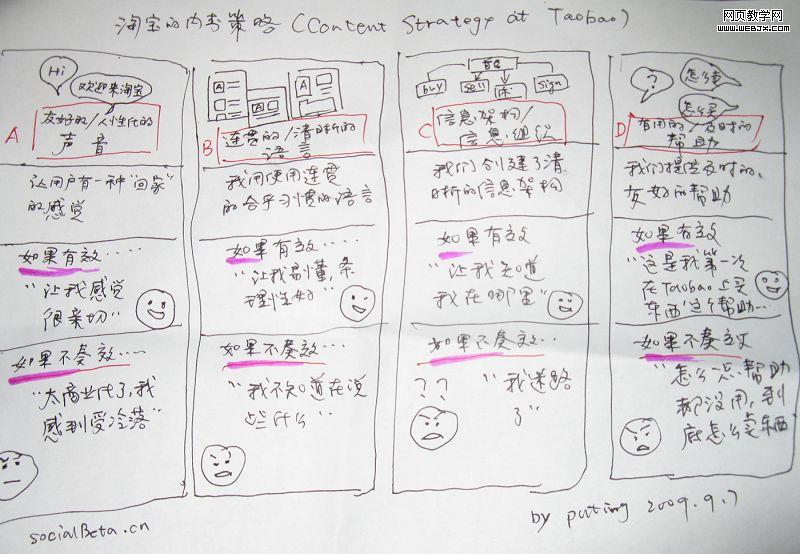 淘宝的内容策略 (Content Strategy at Taobao)
网页教学网
www.WEBJX.com
Hi
欢迎来淘宝
A
友好的/人性化的
声音
让用户有一种"回家"
的感觉
如果有效.....
"让我感觉
很亲切"
如果不奏效....
"太商业化了,我
感到受冷落"
B
连贯的/清晰的
语言
我用使用连贯
的合乎习惯的语言
如果有效.....
"让我易懂,条
理性好"
如果不奏效...
"我不知道在说
些什么"
首页
buy
sell
sign
C
信息架构/
信息组织
我们创建了清
晰的信息架构
如果有效
"让我知道
我在哪里"
如果不奏效...
?? "我迷路
了"
?
怎么卖
怎么买
D
有用的/及时的
帮助
我们提供及时的、
友好的帮助
如果有效
"这是我第一次
在Taobao上买
东西这个帮助...
如果不奏效
"怎么一点帮助
都没用,到
底怎么卖东西
socialBeta.cn
by puting 2009.9.7